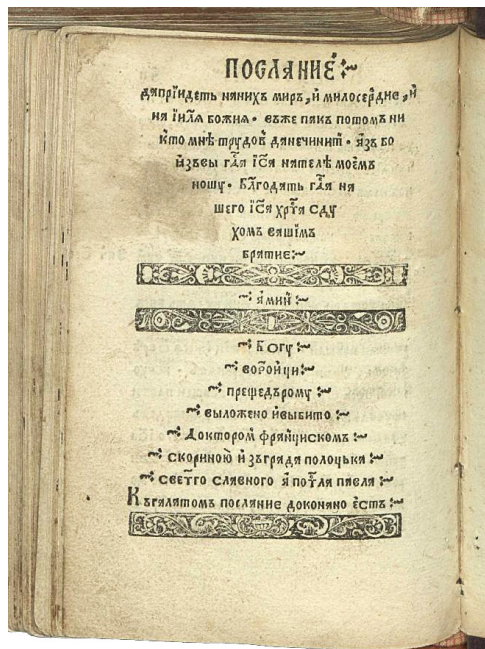 ПОСЛАНИЕ
дапрїидеть наних миръ, и милосердие, и
на їил҃ѧ божиѧ · еъже пакъ потомъ ни
кто мне трудов данечинит · ѧзъ бо
ѧзъвы гс҃а їс҃а нателе моемъ
ношу · Бл҃годать гс҃а на
шего їс҃а хр҃та сду
хомъ вашїмъ
братие:~
~: аминъ :~
~: Богу :~
~: вотройци :~
~: прещедърому :~
~: выложено ивыбито :~
~: Доктором франциском :~
~: скориною изъграда полоцька :~
~: светго славного апостла павла :~
Къгалатом послание доконано есть :~